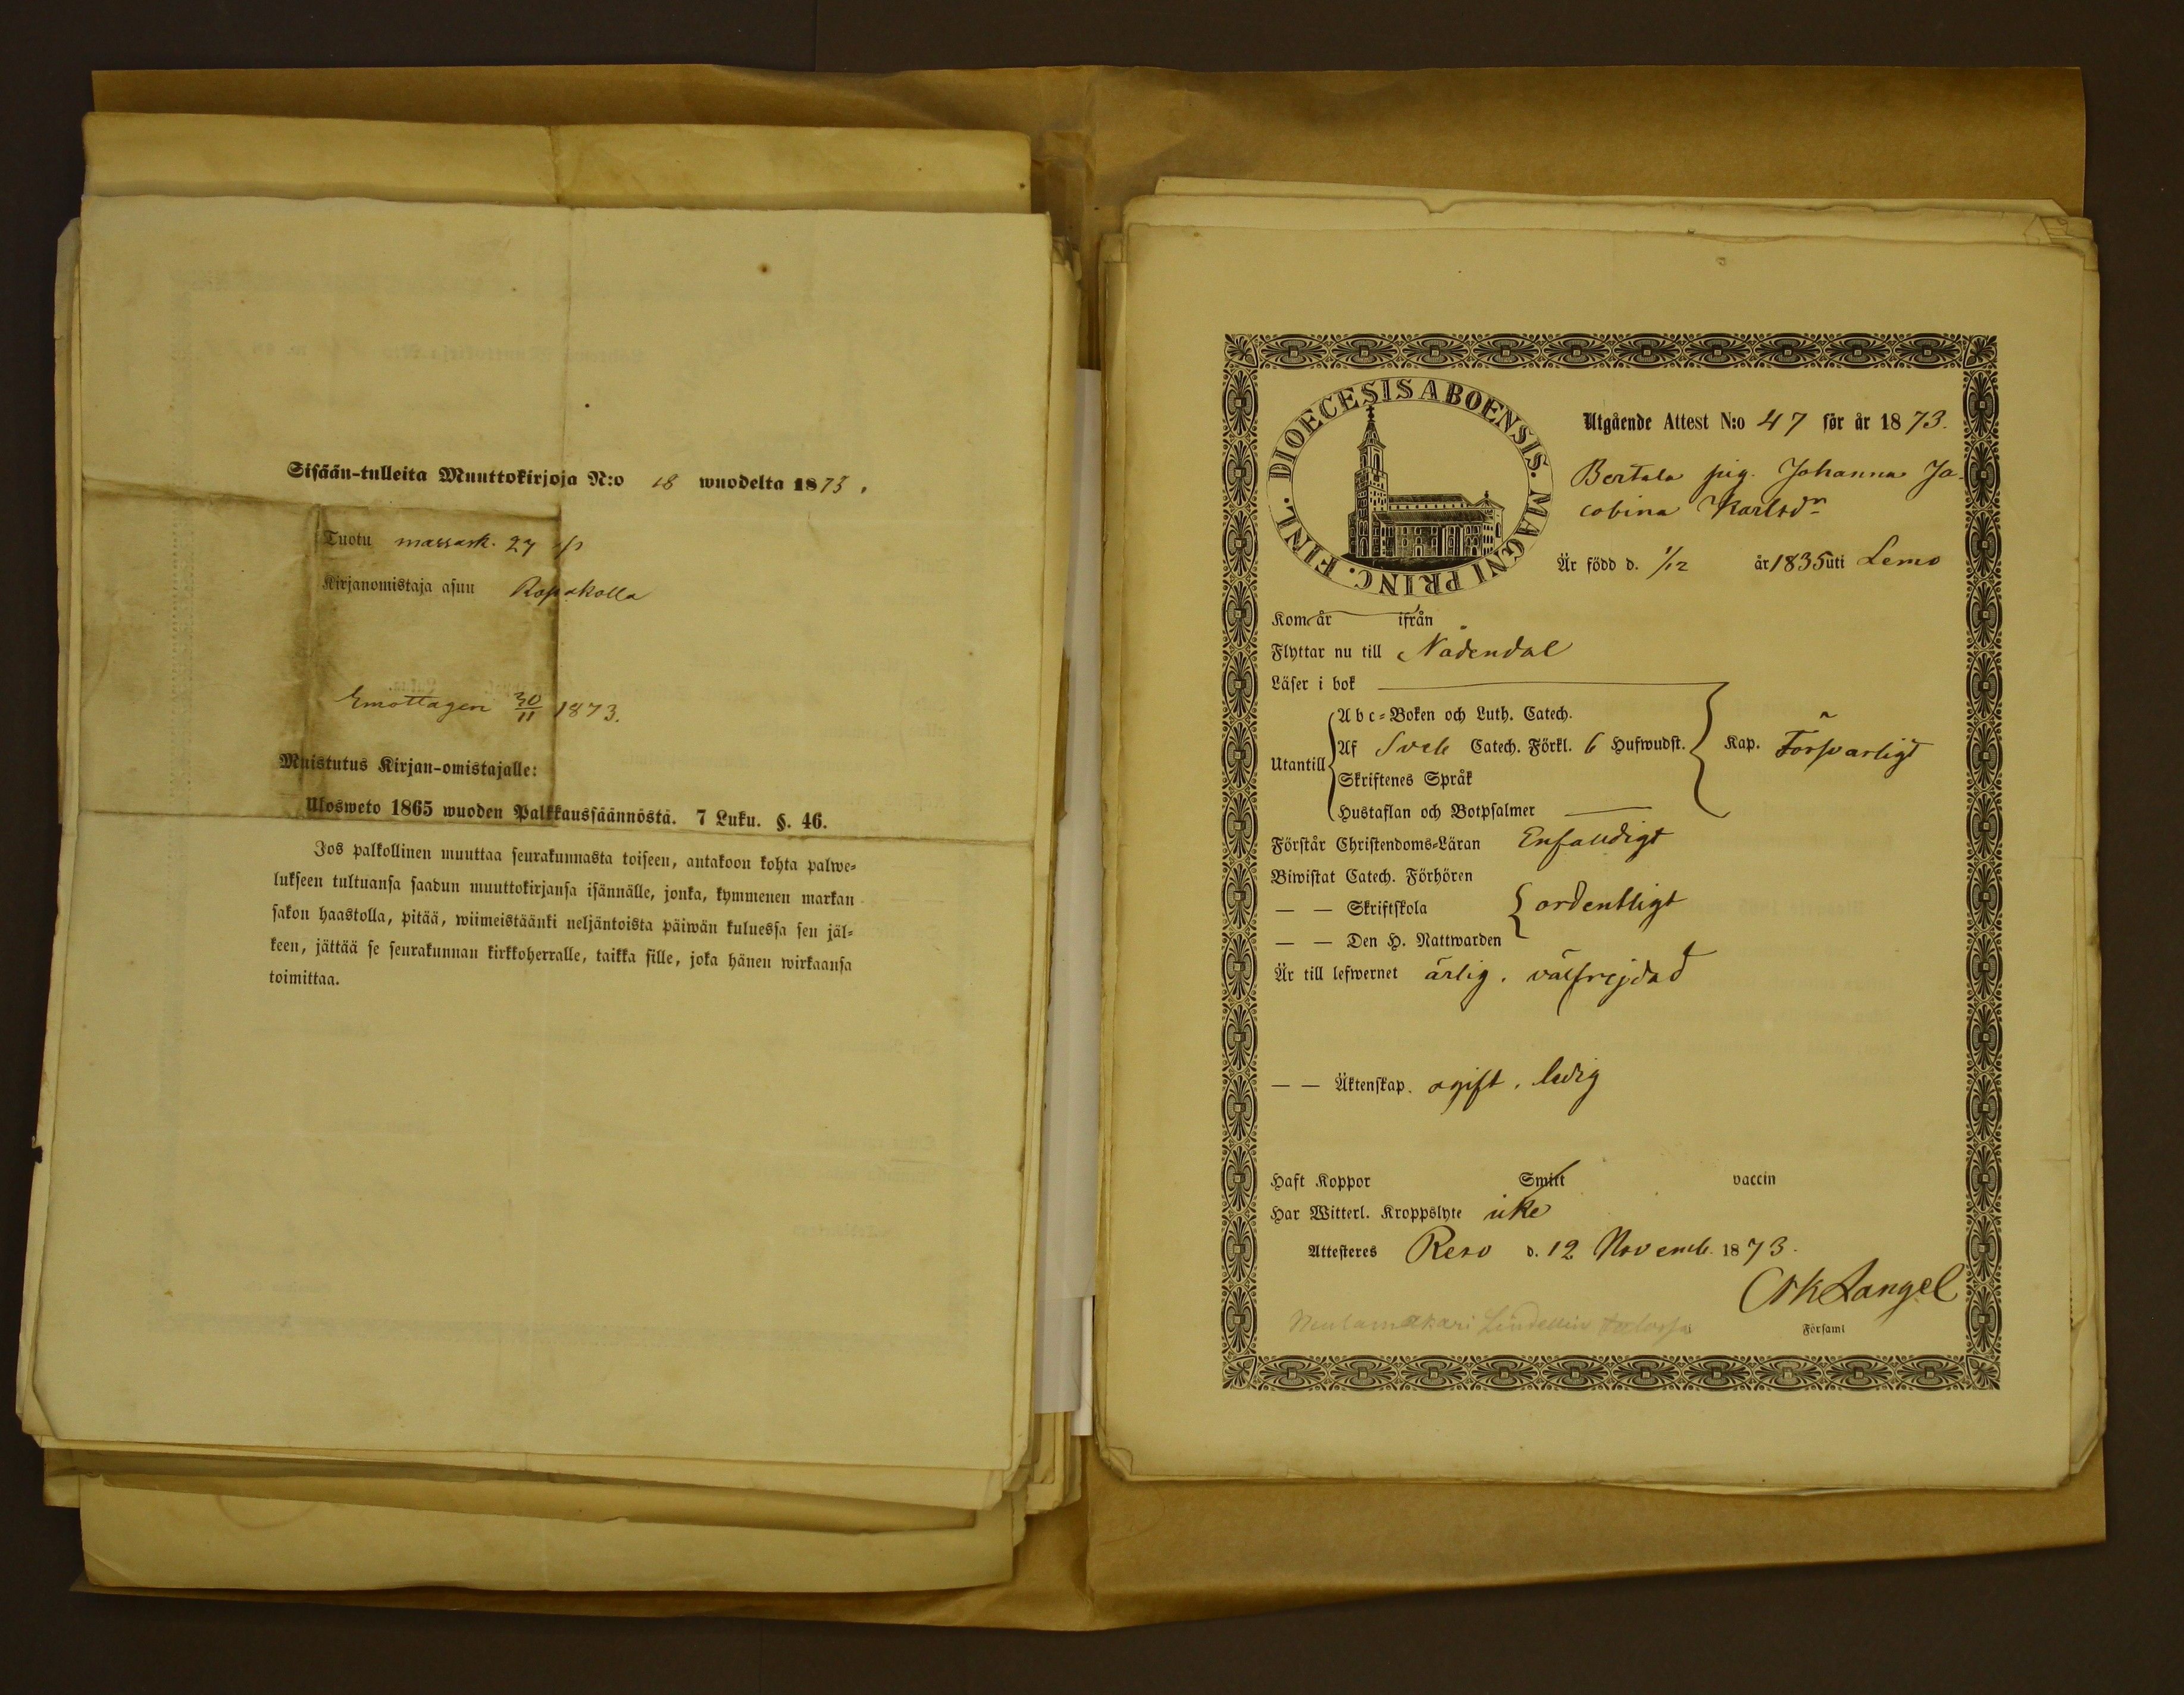 Sisään-tulleita Muuttokirjoja N:o 18 wuodelta 1873.
Tuotu massark. 27
Kirjanomistaja asuu Ropakolla
Emottagen 30/11 1873.
Muistutus Kirjan-omistajalle:
Ulosweto 1865 wuoden Palkkaussäännöstä. 7 Luku. §. 46.
Jos palkollinen muuttaa seurakunnasta toiseen, antakoon kohta palwe-
lukseen tultuansa saadun muuttokirjansa isännälle, jonka, kymmenen markan
sakon haastolla, pitää, wiimeistäänki neljäntoista päiwän kuluessa sen jäl-
keen, jättää se seurakunnan kirkkoherralle, taikka sille, joka hänen wirkaansa
toimittaa.
DIOECESIS ABOENSIS. MAGNI PRINC. FINL.
Utgående Attest N:o 47 för år 1873.
Bertala pig. Johanna Ja-
cobina Karlsdr
Är född d. 1/12 år 1835 uti Lemo
Kom år ifrån
Flyttar nu till Nådendal
Läser i bok
Utantill
Abc-Boken och Luth. Catech.
Af Sveb Catech. Förkl. 6 Hufwudst.
Skriftenes Språk
Hustaflan och Botpsalmer
Kap. Försvarligt
Förstår Christendoms-Läran Enfaldigt
Biwistat Catech. Förhören
— — Skriftskola ordentligt
— — Den H. Nattwarden
Är till lefwernet ärlig, välfrejdad
— — Äktenskap. ogift, ledig
Haft Koppor Smitt vaccin
Har Witterl. Kroppslyte icke
Attesteres Reso d. 12 Novemb. 1873.
Langel
Lindellin
Församl